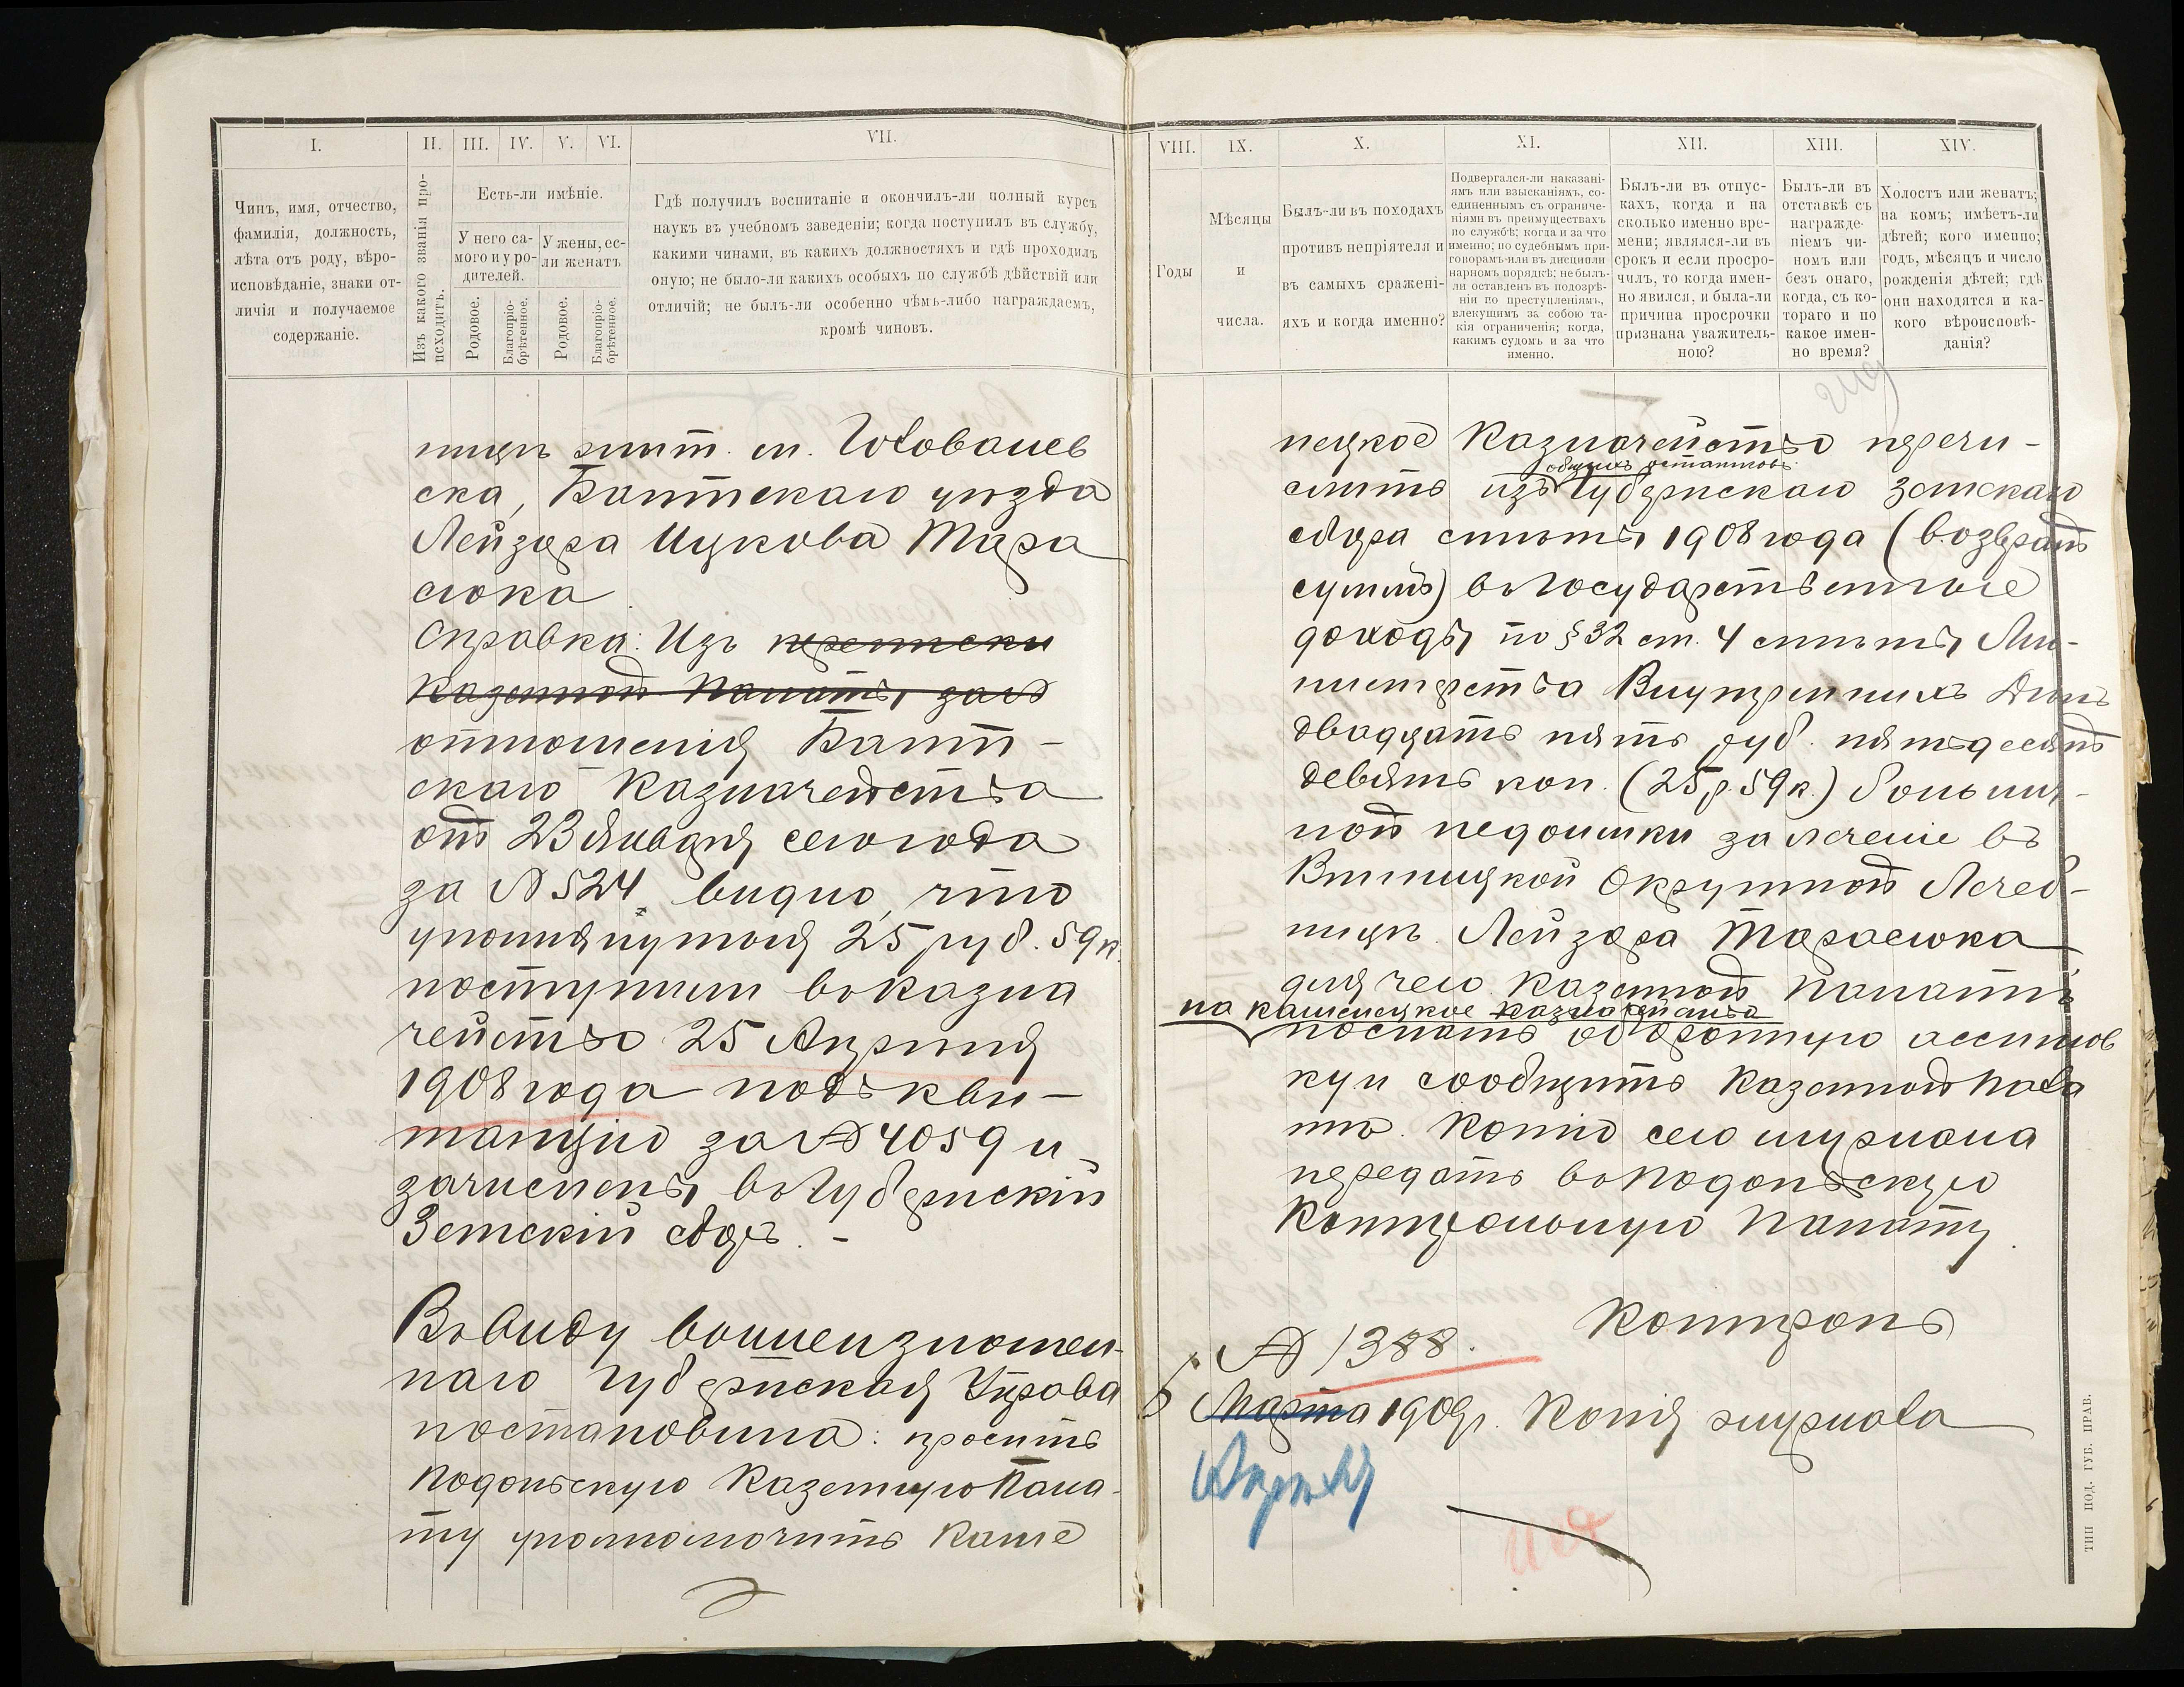 I.
II.
III.
IV.
V.
VI.
VII.
Чинъ, имя, отчество,
фамилія, должность,
лѣта отъ роду, вѣро-
исповѣданіе, знаки от-
личія и получаемое
содержаніе.
Изъ какого званія про-
исходитъ.
Есть-ли имѣніе.
У него са-
мого и у ро-
дителей.
У жены, ес-
ли женатъ
Родовое.
Благопріо-
брѣтенное.
Родовое.
Благопріо-
брѣтенное.
Гдѣ получилъ воспитаніе и окончилъ-ли полный курсъ
наукъ въ учебномъ заведеніи; когда поступилъ въ службу,
какими чинами, въ какихъ должностяхъ и гдѣ проходилъ
оную; не было-ли какихъ особыхъ по службѣ дѣйствій или
отличій; не былъ-ли особенно чѣмъ-либо награждаемъ,
кромѣ чиновъ.
ницѣ жит. м.
ска, Балтскаго уѣзда
Лейзора Ицкова Тара
сюка
Справка: Изъ переписки
Казенной Палаты за №
отношенія Балт-
скаго Казначейства
отъ 23 Января сего года
за № 524, видно, что
упомянутыя 25 руб. 59 к.
поступили въ казна
чейство 25 Апрѣля
1908 года подъ кви-
танцію за № 4059 и
зачислены въ Губернскій
Земскій сборъ. -
Въ виду вышеизложен-
наго Губернская Управа
постановила: просить
Подольскую Казенную Пала-
ту уполномочить Каме
VIII.
IX.
X.
XI.
XII.
XIII.
XIV.
Годы
Мѣсяцы
и
числа.
Былъ-ли въ походахъ
противъ непріятеля и
въ самыхъ сражені-
яхъ и когда именно?
Подвергался-ли наказані-
ямъ или взысканіямъ, со-
единеннымъ съ ограниче-
ніями въ преимуществахъ
по службѣ; когда и за что
именно; по судебнымъ при-
говорамъ-или въ дисципли-
нарномъ порядкѣ; не былъ-
ли оставленъ въ подозрѣ-
ніи по преступленіямъ,
влекущимъ за собою та-
кія ограниченія; когда,
какимъ судомъ и за что
именно.
Былъ-ли въ отпус-
кахъ, когда и на
сколько именно вре-
мени; являлся-ли въ
срокъ и если просро-
чилъ, то когда имен-
но явился, и была-ли
причина просрочки
признана уважитель-
ною?
Былъ-ли въ
отставкѣ съ
награжде-
ніемъ чи-
номъ или
безъ онаго,
когда, съ ко-
тораго и по
какое имен-
но время?
Холостъ или женатъ;
на комъ; имѣетъ-ли
дѣтей; кого именно;
годъ, мѣсяцъ и число
рожденія дѣтей; гдѣ
они находятся и ка-
кого вѣроисповѣ-
данія?
нецкое Казначейство перечи-
общихъ остатковъ
слить изъ Губернскаго Земскаго
сбора смѣты 1908 года (возвратъ
суммъ) въ Государственные
доходы по § 32 ст. 4 смѣты Ми-
нистерства Внутреннихъ Дѣлъ
двадцать пять руб. пятьдесятъ
девять коп. (25 р. 59 к.) больнич-
ной недоимки за леченіе въ
Винницкой Окружной Лечеб-
ницѣ Лейзора Тарасюка
для чего Казенной Палатѣ
на Каменецкое казначейство
послать оборотную ассигнов
ку и сообщить Казенной Пала
тѣ. Копію сего журнала
передать въ Подольскую
Контрольную Палату.
Контроль
№ 1388.
6 Марта 1909 г. Копія журнала
Апрѣля
ТИП. ПОД. ГУБ. ПРАВ.